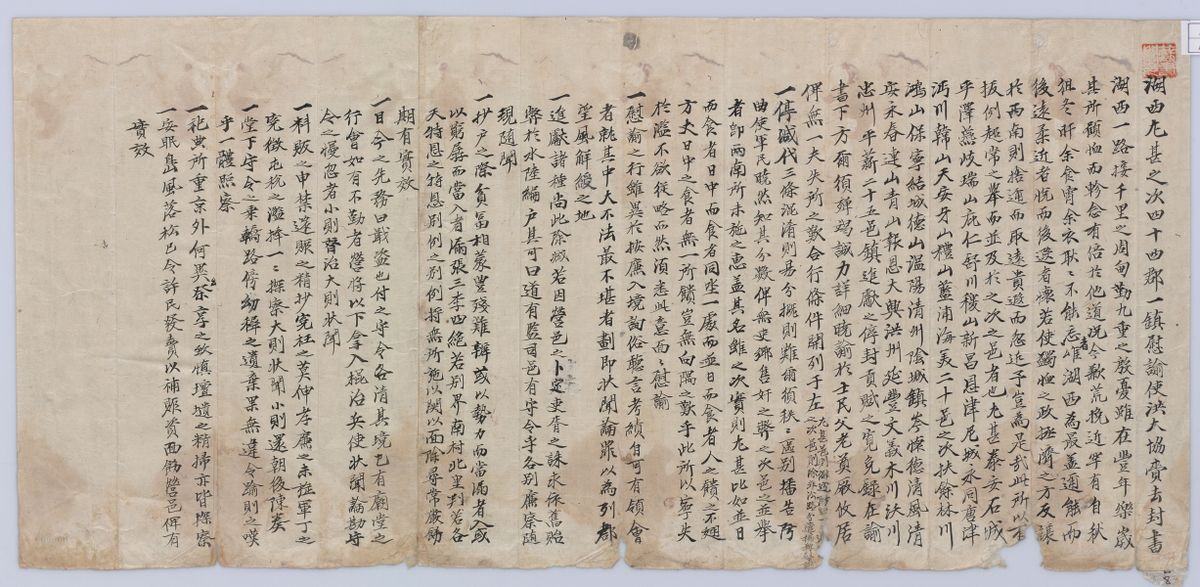 湖西尤甚之次四十四郡一鎮慰諭使洪大協賫去封書
湖西一路接千里之周甸勤九重之憂雖在豊年樂歲
其所顧恤而軫念有倍於他道況今歉荒挽近罕有自秋
徂冬旰余食宵余衣耿耿不能忘者唯湖西為最盖適能而
後遠柔近者悅而後遠者懷若使獨恤之政拯濟之方反讓
於兩南則捨邇而取遠貴遐而忽近予豈為是哉此所以不
拔例超常之擧而並及於之次之邑者也尤甚泰安石城
平澤燕歧瑞山庇仁舒川稷山新昌恩津尼城永同唐津
沔川韓山天安牙山禮山藍浦海美二十邑之次扶餘林川
鴻山保寧結城德山溫陽清州陰城鎮岑懷德清風清
安永春連山青山報恩大興洪州延豊文義木川沃川
忠州平薪二十五邑鎮進獻之停封貢賦之寬免錄在諭
書下方爾須殫竭誠力詳細曉諭於士民父老莫厥攸居
俾無一夫失所之歎合行條件開列于左
一停減代三條混淆則易分擺則難爾須秩秩區別播告階
曲使軍民曉然知其分數俾無吏鄉售奸之弊之次邑之並擧
者卽兩南所未施之惠盖其名雖之次實則尤甚比如並日
而食者日中而食者同坐一處而並日而食者人之饋之不
方丈日中之食者無一所饋豈無向隅之歎乎此所以寧失
於濫不欲從略而然須悉此意面面慰諭
一慰諭之行雖異於按廉入境詢俗聽言考績自可有領會
者就其中大不法最不堪者劃卽狀聞論罪以為列郡
望風解綬之地
一進獻諸種尚此除減若因營邑之卜定吏胥之誅求依舊貽
弊於水陸編戶其可曰道有監司邑有守令乎各別廉察隨
現隨聞
一抄戶之際貧富相蒙豊殘難辨或以勢力而當漏者入或
以窮孱而當入者漏張三李四絕若別界南村北里判若各
天特恩之特恩別例之別例將無所施以關以面除尋常嚴飭
期有實效
一目今之先務曰戢盜也付之守令各清其境已有廟堂之
行會如有不勤者營將以下拿入棍治兵使狀聞論勘守
令之慢忽者小則督治大則狀聞
一料販之申禁蓬賑之精抄冤枉之莫伸孝廉之未推軍丁之
冤徵屯稅之濫捧一一探察大則狀聞小則還朝後陳奏
一堂下守令之乘轎路傍幼稚之遺棄果無違令踰則之嘆
乎一體照察
一祀典所重京外何異祭享之致愼壇壝之精掃亦皆探察
一安眠島風落松已令許民發賣以補賑資面飭營邑俾有
實效